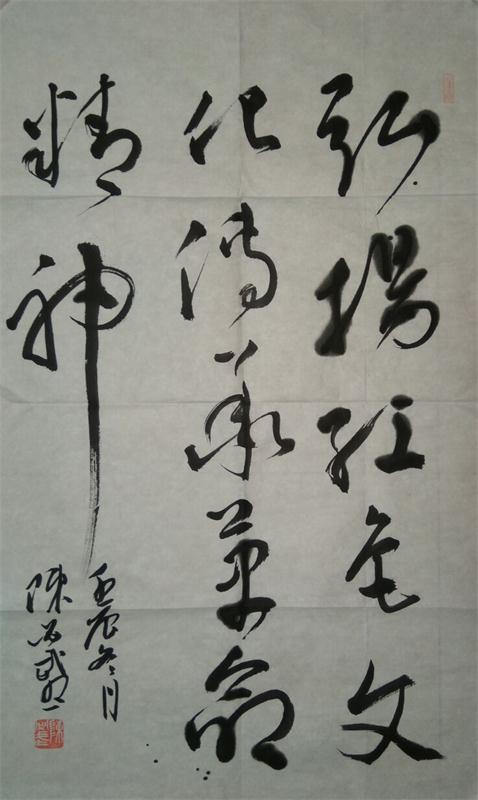 弘揚紅色文
化傳承革命
精神
壬辰冬月
陳